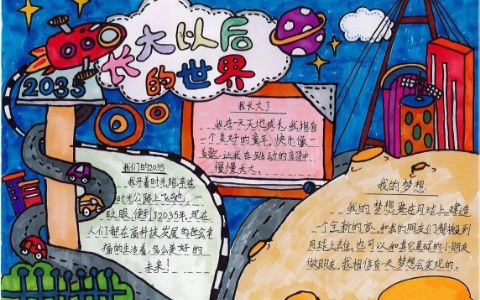 长大以后
的世界
2035
我长大了
我在一天天地成长,我拥有
一个美好的童年,快乐像
音符,让我在跳动的音符中
慢慢长大。
我们的2035
我开着时光跑车在
时光公路上飞驰,一
眨眼,便到了2035年,现在
人们都在高科技发展的社会幸
福的生活着,多么美好的
未来!
我的梦想
我的梦想要在月球上建造
一个全新的家,和我的朋友们都搬到
月球上去住,也可以和其它星球的小朋友
做朋友,我相信有一天梦想会实现的。